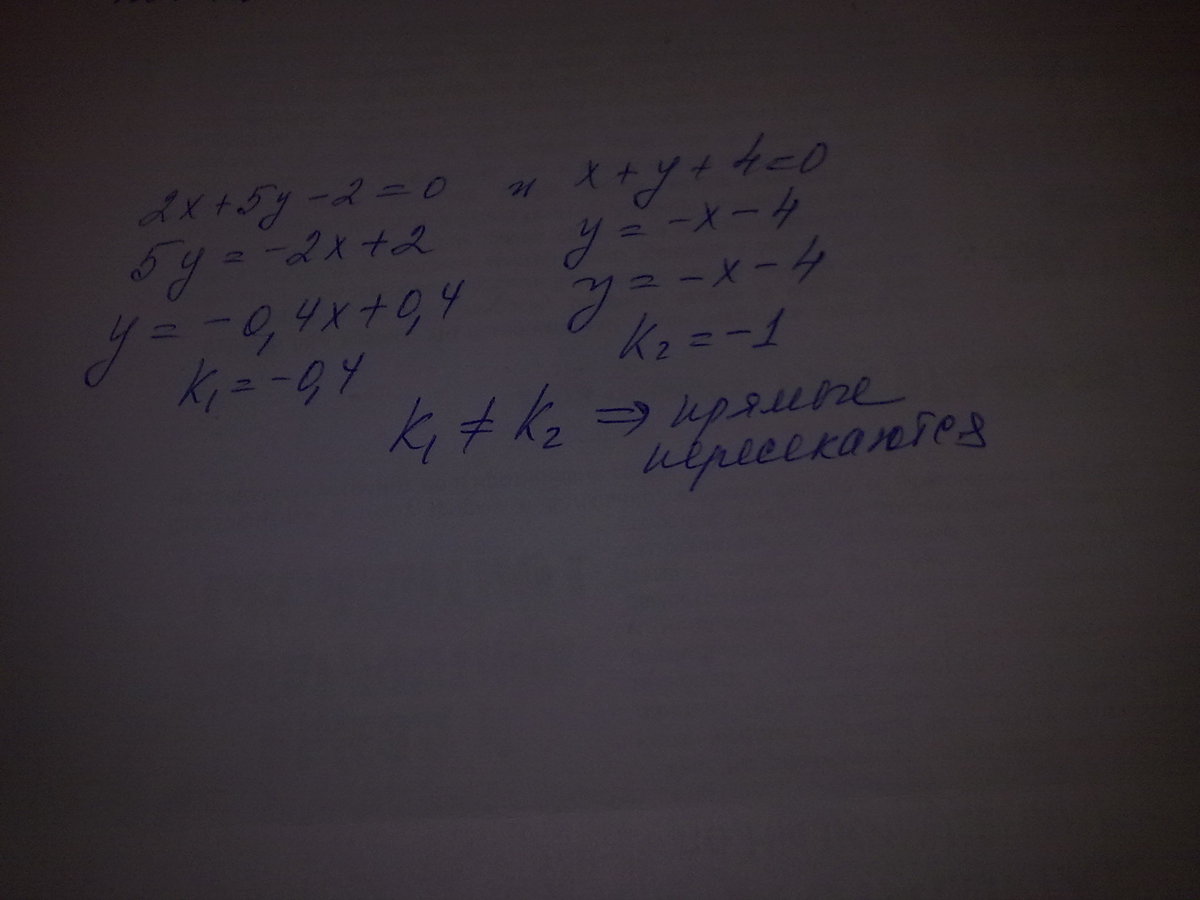 2x+5y-2=0 и x+y+4=0
5y=-2x+2 y=-x-4
y=-0,4x+0,4 y=-x-4
k₁=-0,4 k₂=-1
k₁≠k₂ ⇒ прямые
пересекаются